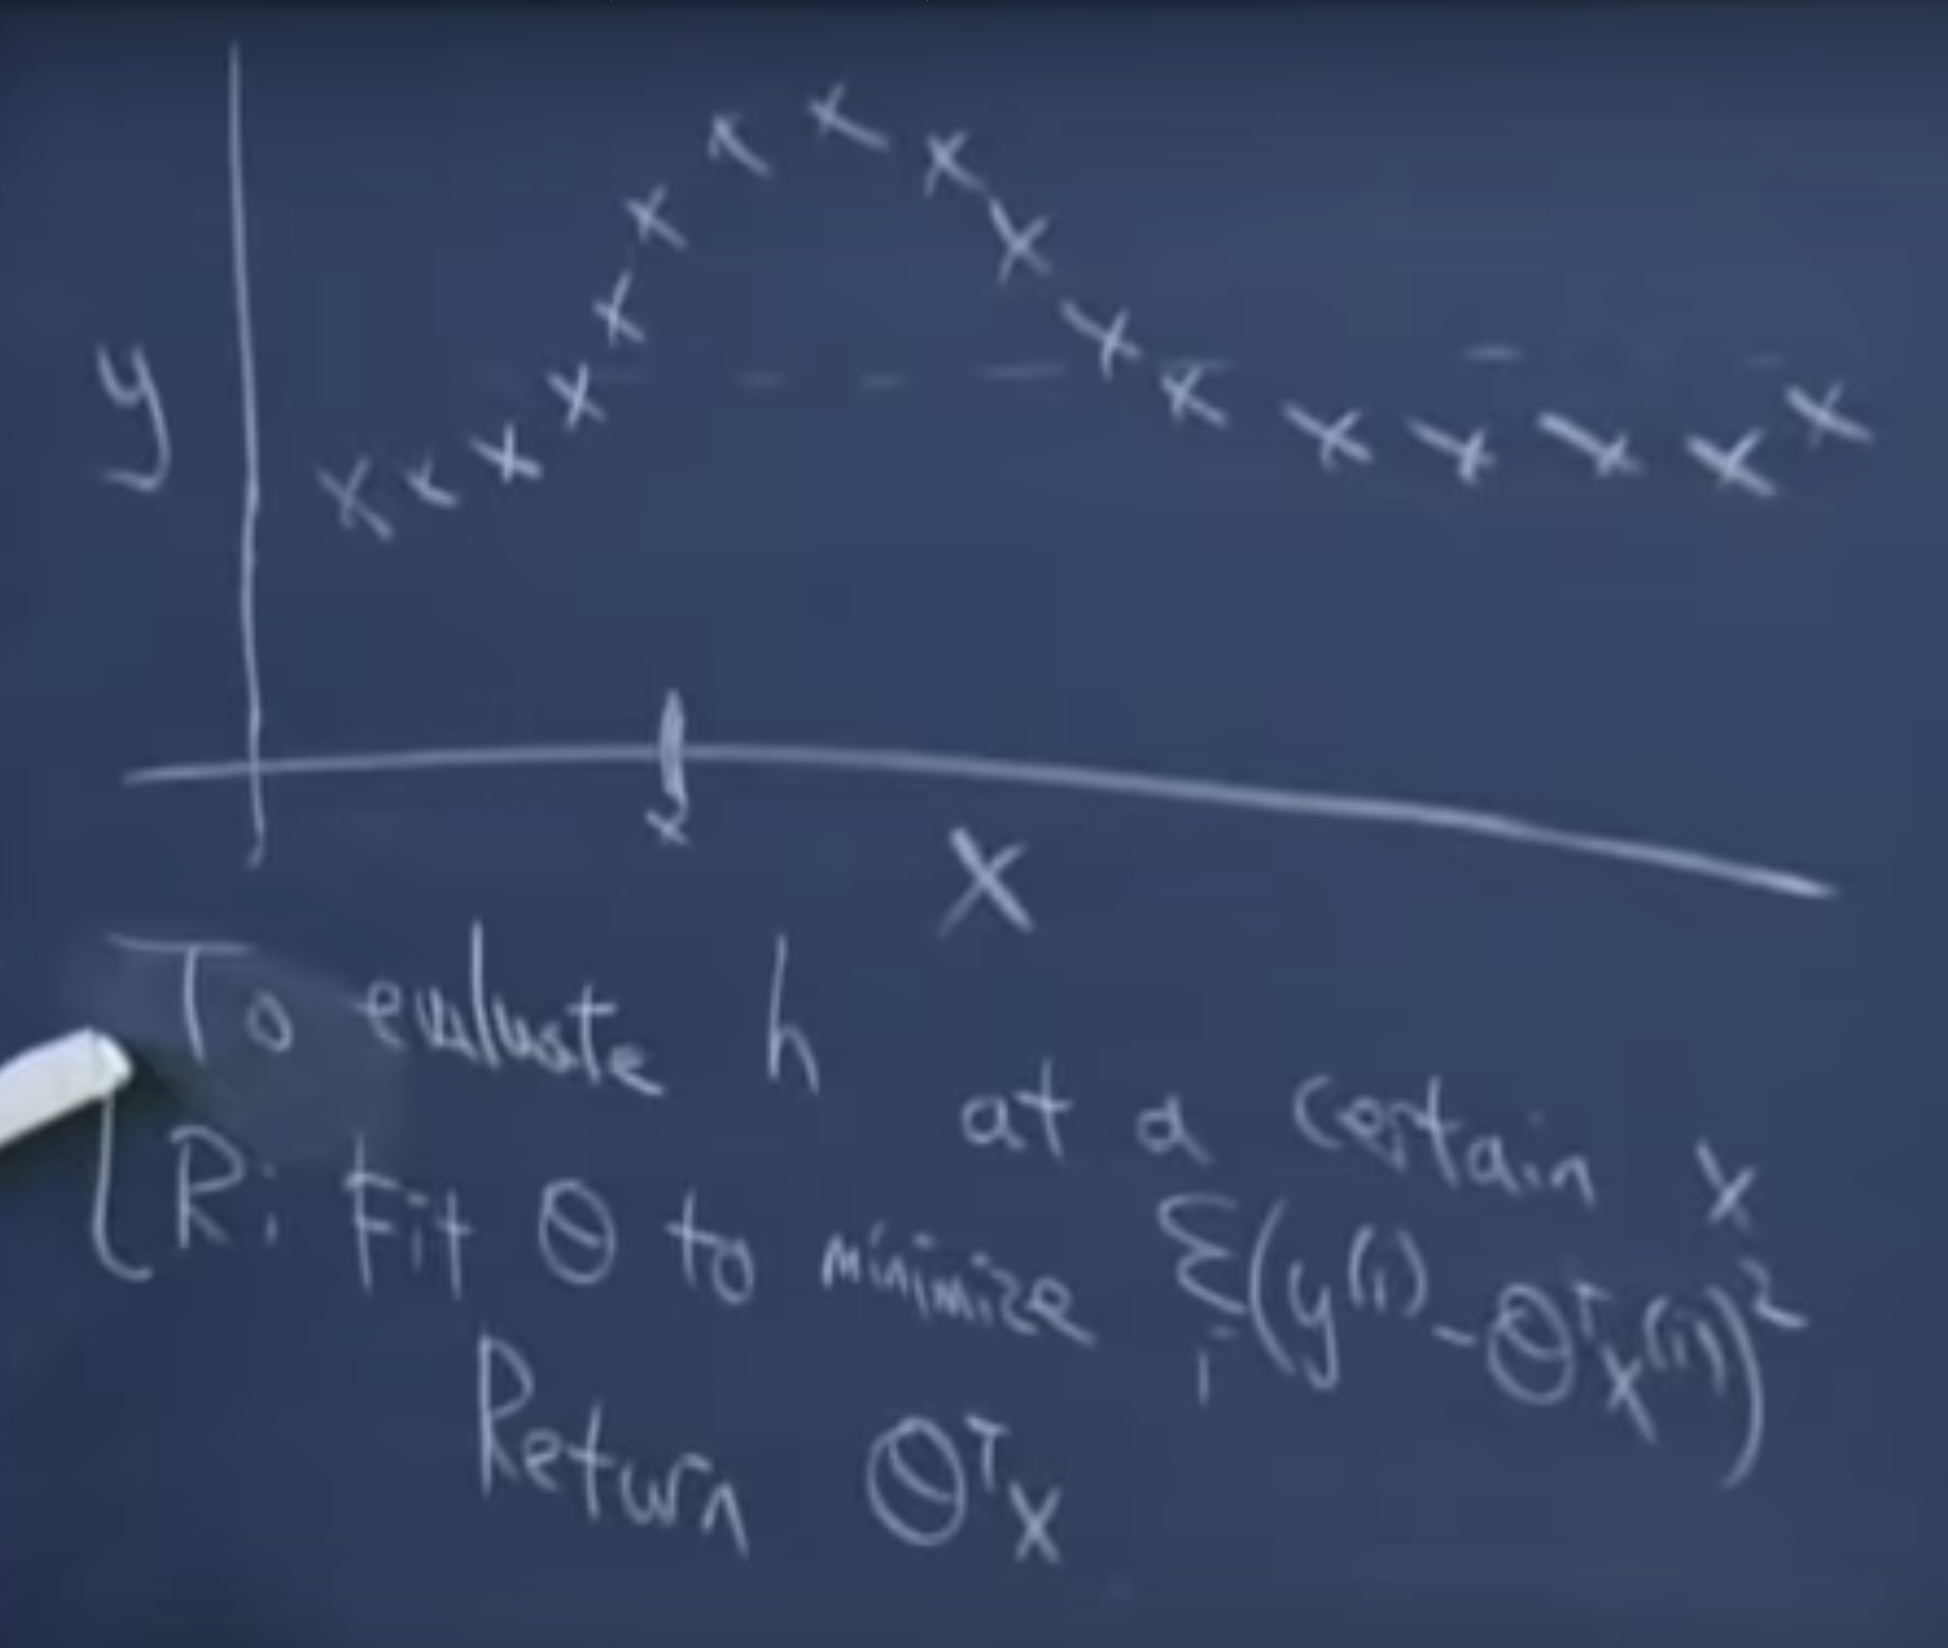 y
x
X
To evaluate h at a certain x
LR: Fit θ to minimize Σ_i (y^(i) - θ^T x^(i))^2
Return θ^T x